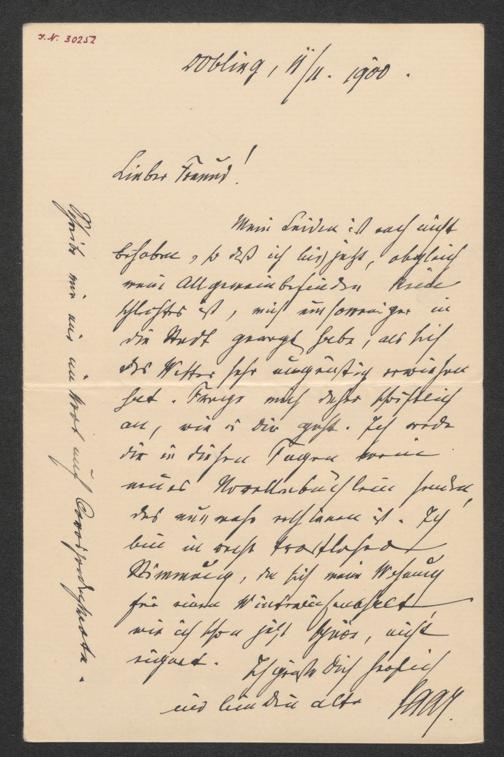 J. N. 30252
Döbling, 11/11. 1900.
Lieber Freund!
Mein Leiden ist noch nicht
behoben, so daß ich bis jetzt, obgleich
mein Allgemeinbefinden kein
schlechtes ist, mich umsoweniger in
die Stadt gewagt habe, als sich
das Wetter sehr ungünstig erwiesen
hat. Frage mich daher schriftlich
an, wie es dir geht. Ich werde
dir in diesen Tagen mein
neues Novellenbüchlein senden,
das nunmehr erschienen ist. Ich
bin in recht trostloser
Stimmung, da sich mein Wohnung
für einen Winteraufenthalt,
wie ich schon jetzt spüre, nicht
eignet. Ich grüße dich herzlich
und bin dein alter Saar.
Schreib mir ein Wort auf Correspondenzkarte.